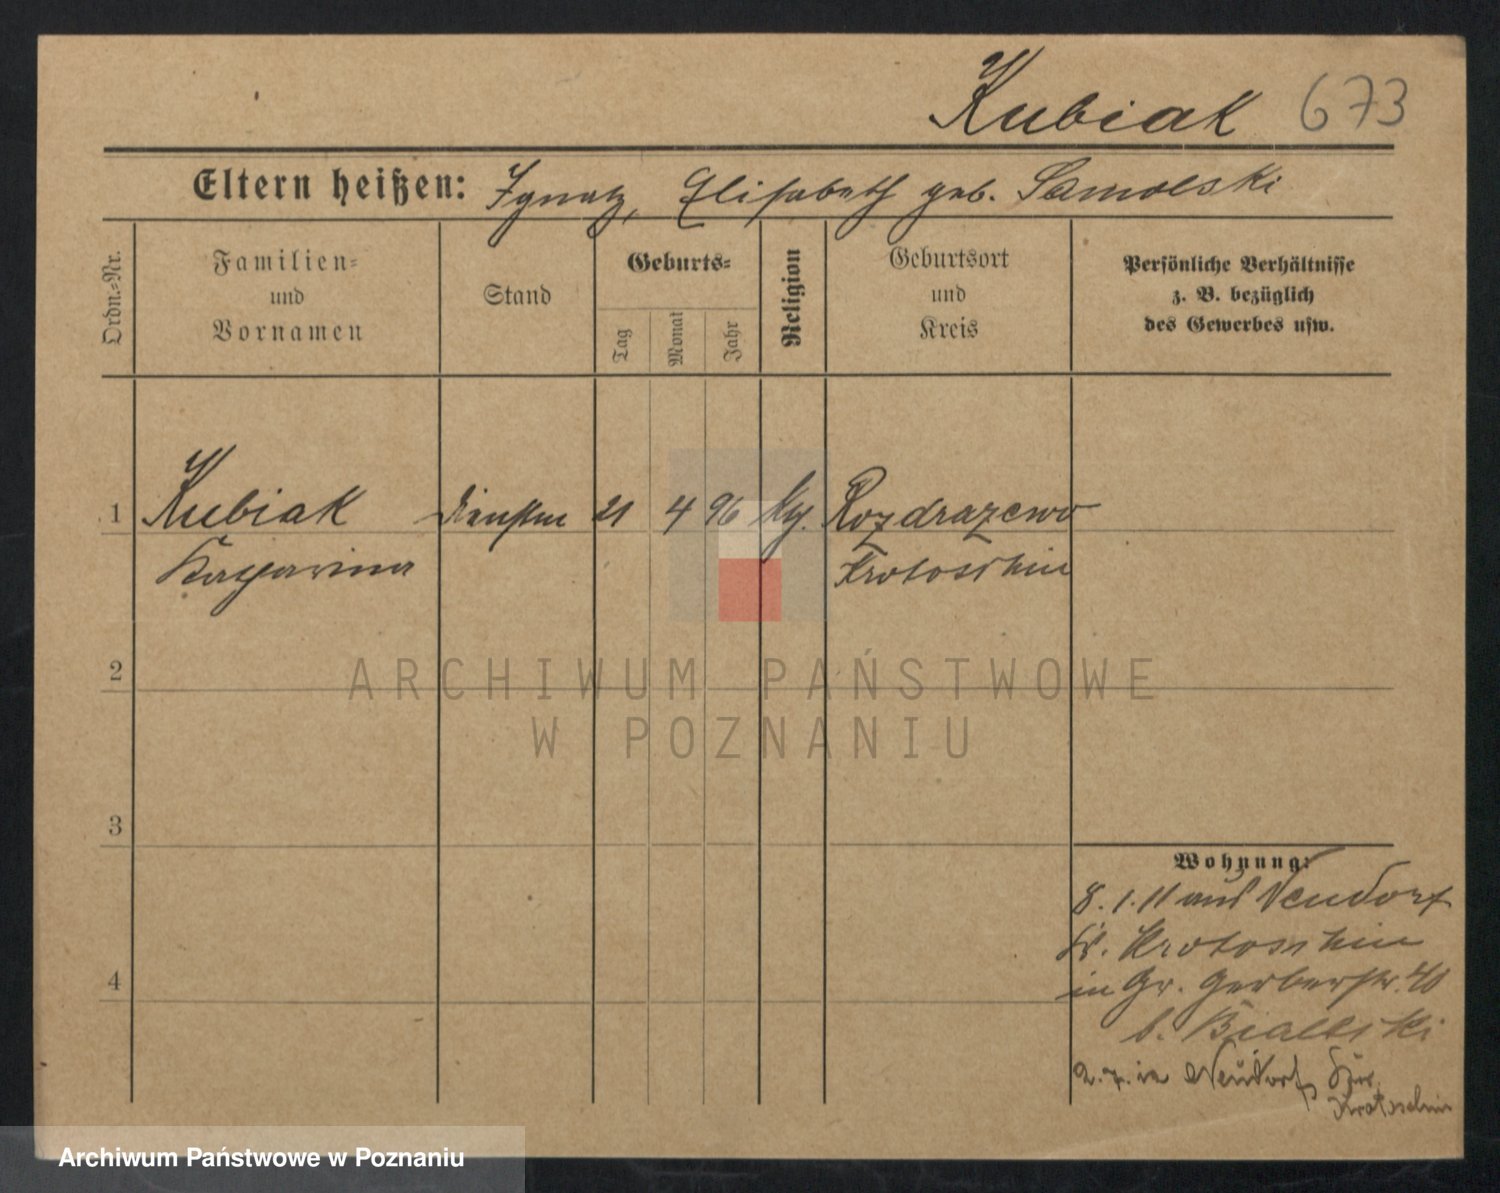 Kubiak 673
Eltern heißen: Ignatz, Elisabeth geb. Samolski
Ordn.-Nr.
Familien-
und
Vornamen
Stand
Geburts-
Tag
Monat
Jahr
Religion
Geburtsort
und
Kreis
Persönliche Verhältnisse
z. B. bezüglich
des Gewerbes usw.
1 Kubiak 21 4 96 Rozdrazewo
Katharina Krotoschin
2
3
4
Wohnung:
8. 1. 11 aus Neudorf
Kr. Krotoschin
in Gr. Gerberstr. 40
b. Bialetzki
2. 7. in Neudorf, Kr.
Krotoschin
ARCHIWUM PAŃSTWOWE
W POZNANIU
Archiwum Państwowe w Poznaniu